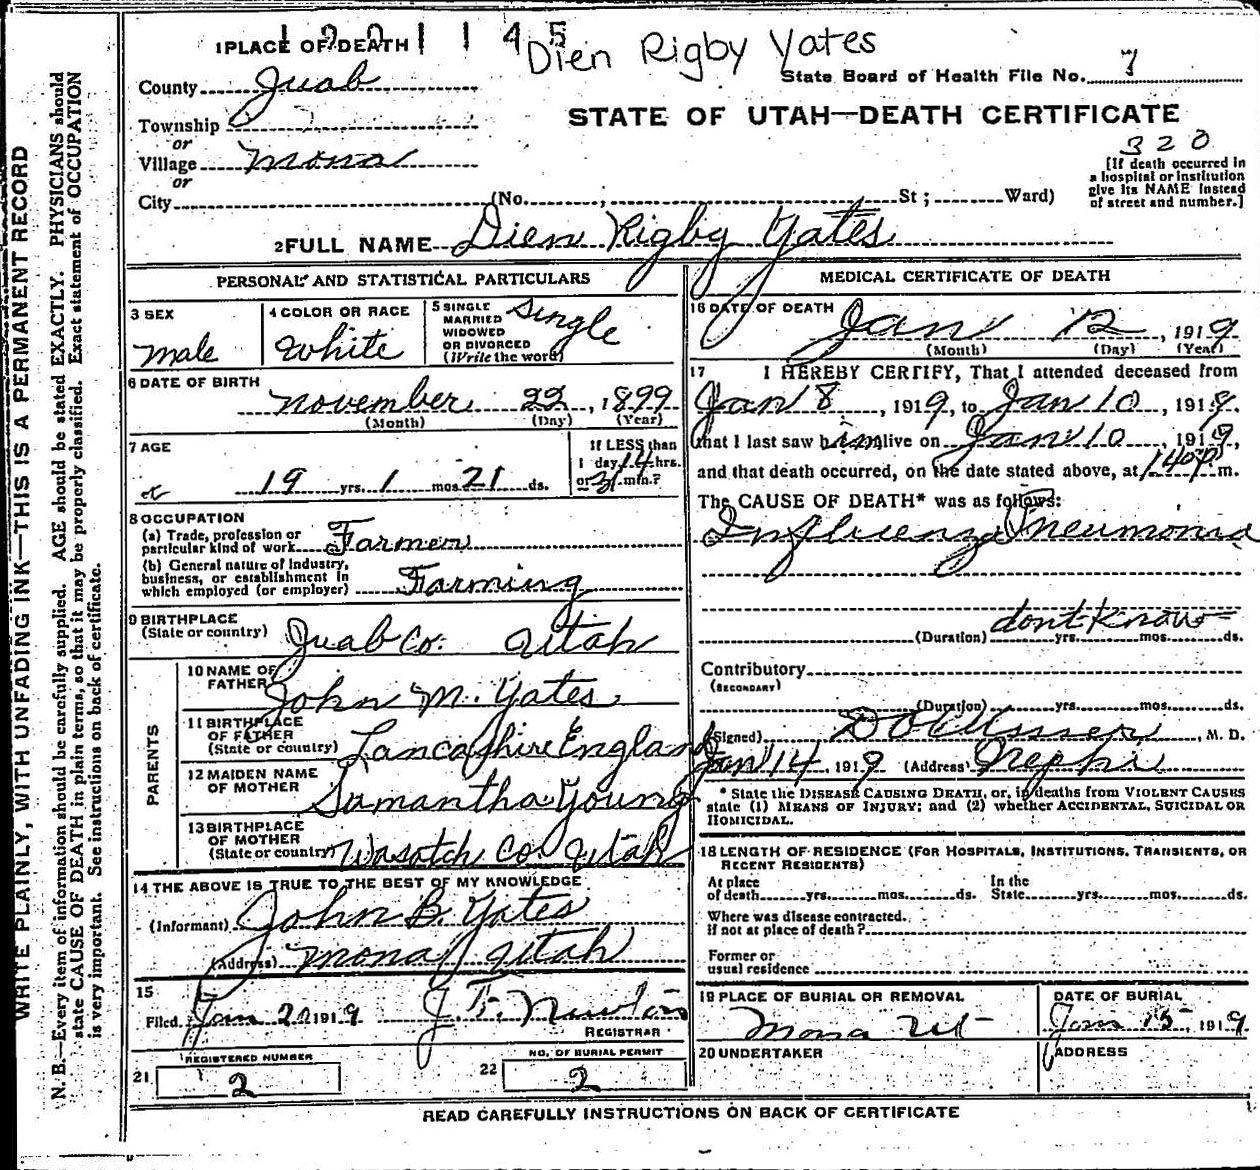 WRITE PLAINLY, WITH UNFADING INK—THIS IS A PERMANENT RECORD
N. B.—Every item of information should be carefully supplied. AGE should be stated EXACTLY. PHYSICIANS should
state CAUSE OF DEATH in plain terms, so that it may be properly classified. Exact statement of OCCUPATION
is very important. See instructions on back of certificate.
1 PLACE OF DEATH
Dien Rigby Yates
State Board of Health File No. 7
County Juab
STATE OF UTAH—DEATH CERTIFICATE
Township
or
Village Mona
or
320
[If death occurred in
a hospital or institution
give its NAME instead
of street and number.]
City (No. , St ; Ward)
2 FULL NAME Dien Rigby Yates
PERSONAL AND STATISTICAL PARTICULARS
3 SEX
Male
4 COLOR OR RACE
White
5 SINGLE
MARRIED
WIDOWED
OR DIVORCED
(Write the word)
Single
6 DATE OF BIRTH
November 22, 1899
(Month) (Day) (Year)
7 AGE
19 yrs. 1 mos. 21 ds.
If LESS than
1 day 14 hrs.
or 31 min.?
8 OCCUPATION
(a) Trade, profession or
particular kind of work Farmer
(b) General nature of industry,
business, or establishment in
which employed (or employer) Farming
9 BIRTHPLACE
(State or country) Juab Co. Utah
PARENTS
10 NAME OF
FATHER John M. Yates
11 BIRTHPLACE
OF FATHER
(State or country) Lancashire England
12 MAIDEN NAME
OF MOTHER Samantha Young
13 BIRTHPLACE
OF MOTHER
(State or country) Wasatch Co. Utah
14 THE ABOVE IS TRUE TO THE BEST OF MY KNOWLEDGE
(Informant) John B. Yates
(Address) Mona Utah
15
Filed Jan 20 1919 J. T. Newton
REGISTRAR
REGISTERED NUMBER
21 2
NO. OF BURIAL PERMIT
22 2
MEDICAL CERTIFICATE OF DEATH
16 DATE OF DEATH
Jan 12, 1919
(Month) (Day) (Year)
17 I HEREBY CERTIFY, That I attended deceased from
Jan 8, 1919, to Jan 10, 1919,
that I last saw him alive on Jan 10, 1919,
and that death occurred, on the date stated above, at 140 P m.
The CAUSE OF DEATH* was as follows:
Influenza Pneumonia
(Duration) dont know yrs. mos. ds.
Contributory
(SECONDARY)
(Duration) yrs. mos. ds.
(Signed) , M. D.
Jan 14, 1919 (Address) Nephi
* State the DISEASE CAUSING DEATH, or, in deaths from VIOLENT CAUSES
state (1) MEANS OF INJURY; and (2) whether ACCIDENTAL, SUICIDAL OR
HOMICIDAL.
18 LENGTH OF RESIDENCE (FOR HOSPITALS, INSTITUTIONS, TRANSIENTS, OR
RECENT RESIDENTS)
At place
of death yrs. mos. ds.
In the
State yrs. mos. ds.
Where was disease contracted.
If not at place of death?
Former or
usual residence
19 PLACE OF BURIAL OR REMOVAL
Mona Ut
DATE OF BURIAL
Jan 15, 1919
20 UNDERTAKER
ADDRESS
READ CAREFULLY INSTRUCTIONS ON BACK OF CERTIFICATE